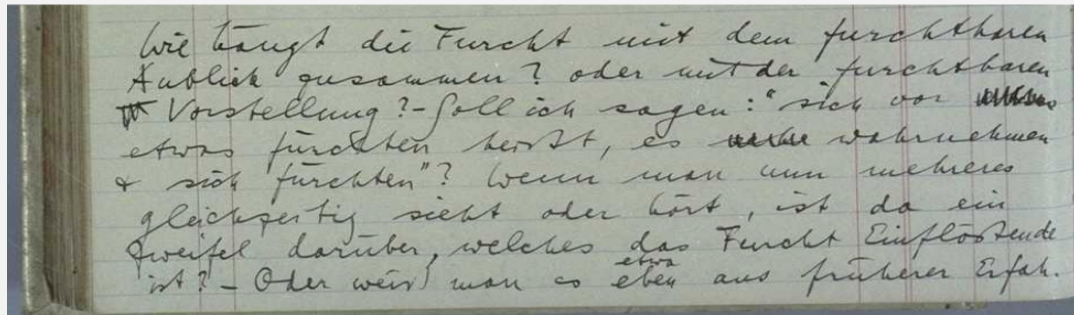 Wie hängt die Furcht mit dem furchtbaren
Anblick zusammen? oder mit der furchtbaren
Vorstellung? – Soll ich sagen: "sich vor
etwas fürchten heißt, es wahrnehmen
& sich fürchten"? Wenn man nun mehreres
gleichzeitig sieht oder hört, ist da ein
Zweifel darüber, welches das Furcht Einflößende
etwa
ist? – Oder weiß man es eben aus früherer Erfah-